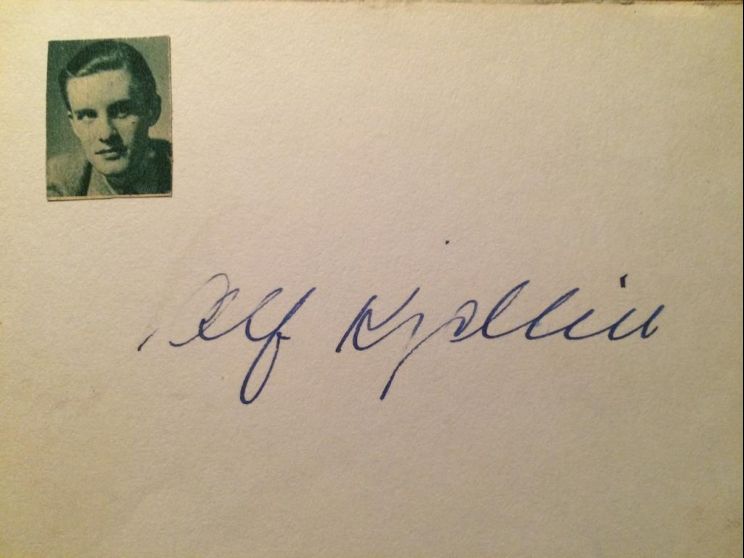 Alf Kjellin